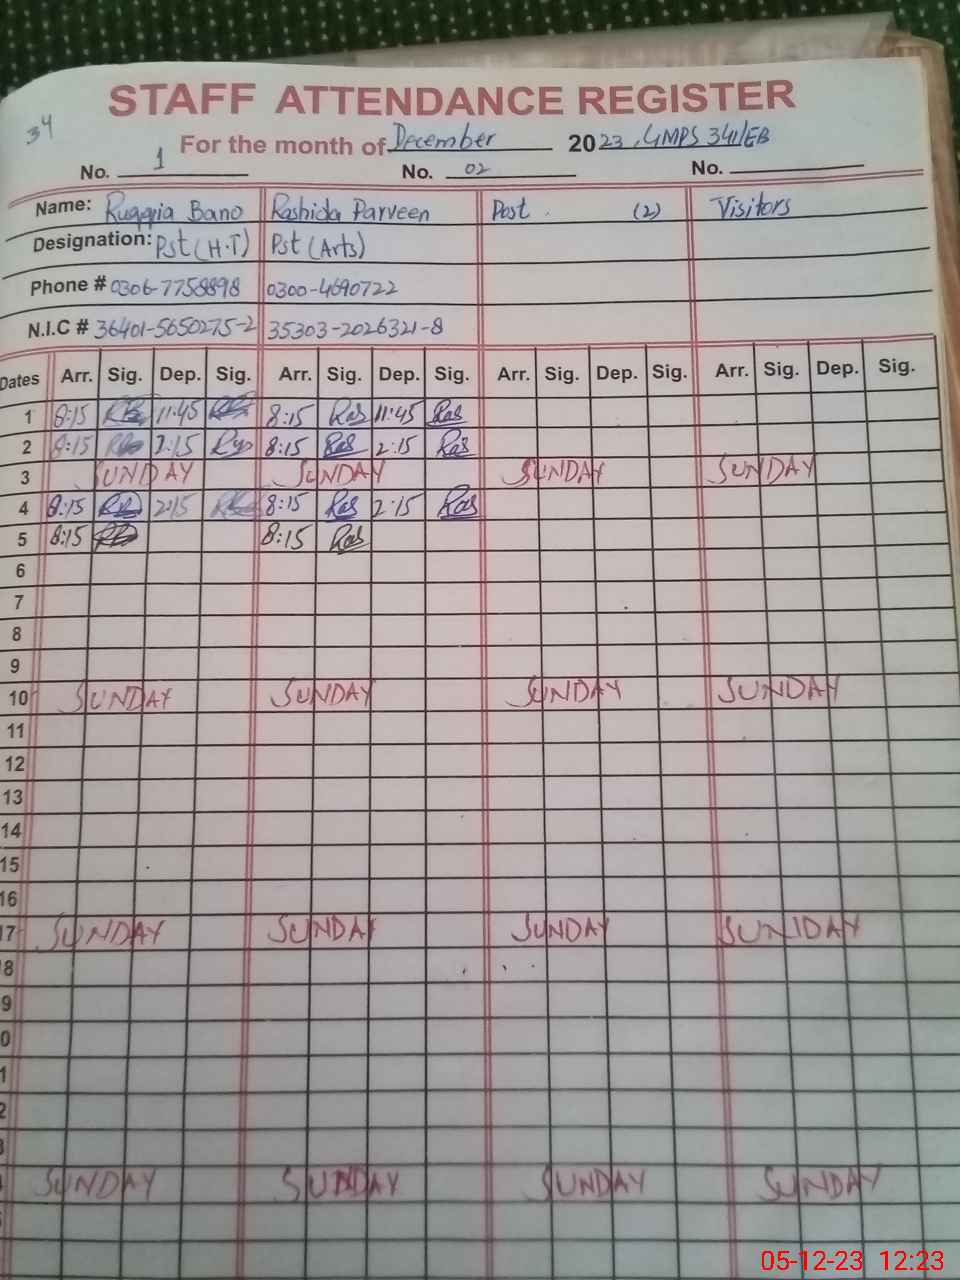 34
STAFF ATTENDANCE REGISTER
For the month of December 2023, GMPS 341/EB
No. 1 No. 02 No.
Name: Ruqqia Bano Rashida Parveen Post. (2) Visitors
Designation: Pst (H.T) Pst (Arts)
Phone # 0306-7758898 0300-4690722
N.I.C # 36401-5650275-2 35303-2026321-8
Dates Arr. Sig. Dep. Sig. Arr. Sig. Dep. Sig. Arr. Sig. Dep. Sig. Arr. Sig. Dep. Sig.
1 8:15 11:45 8:15 Ras 11:45 Ras
2 8:15 2:15 8:15 Ras 2:15 Ras
3 SUNDAY SUNDAY SUNDAY SUNDAY
4 8:15 2:15 8:15 Ras 2:15 Ras
5 8:15 8:15 Ras
6
7
8
9
10 SUNDAY SUNDAY SUNDAY SUNDAY
11
12
13
14
15
16
7 SUNDAY SUNDAY SUNDAY SUNDAY
8
9
0
1
2
3
SUNDAY SUNDAY SUNDAY SUNDAY
05-12-23 12:23